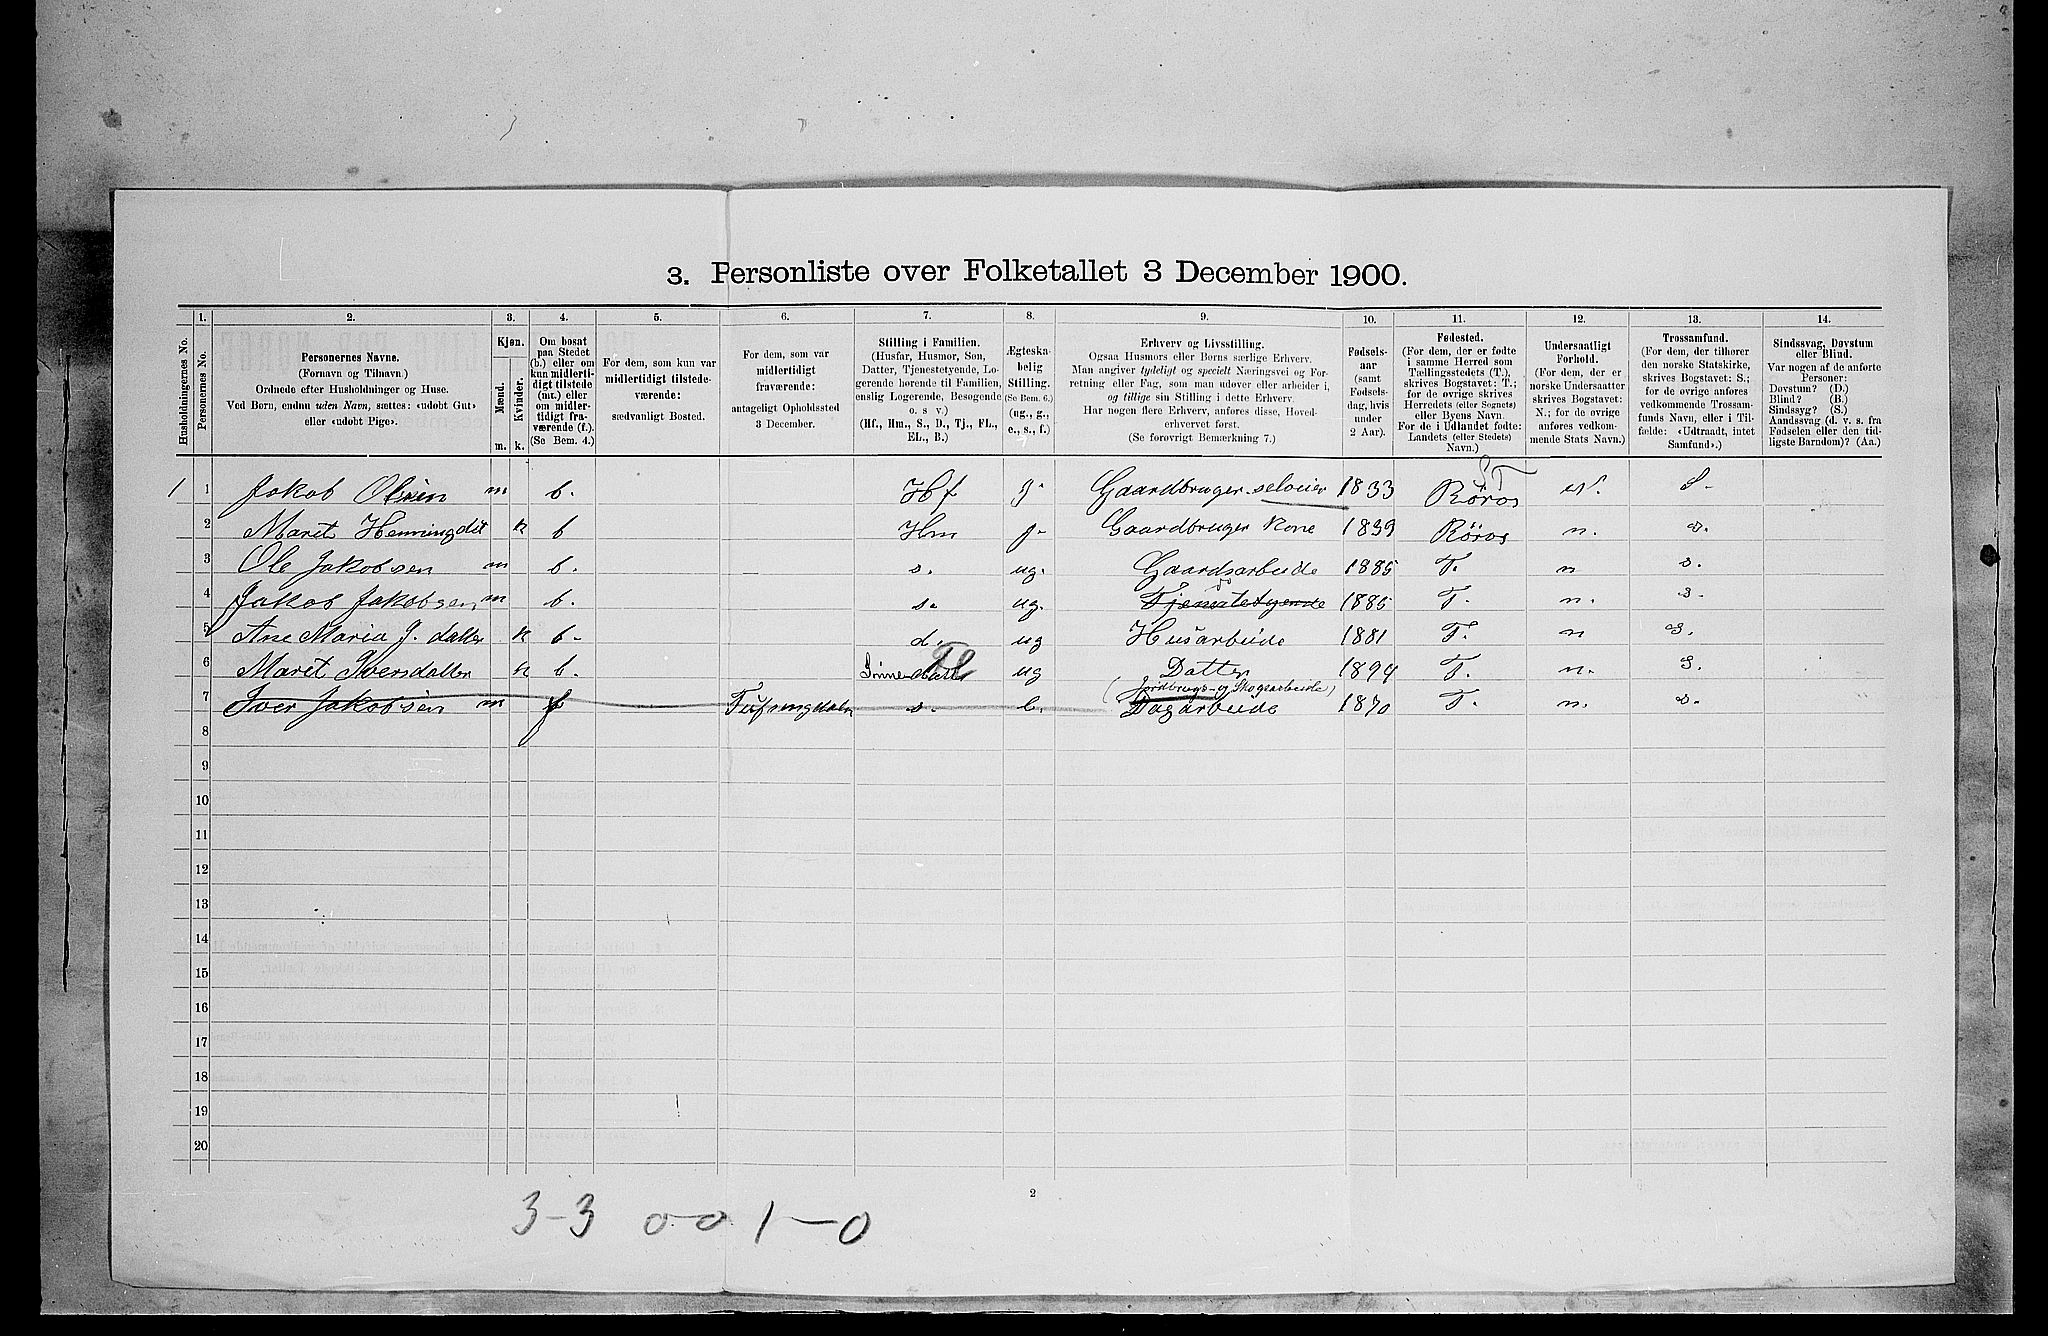 3. Personliste over Folketallet 3 December 1900.
1. 2. 3. 4. 5. 6. 7. 8. 9. 10. 11. 12. 13. 14.
Husholdningernes No.
Personernes No.
Personernes Navne.
(Fornavn og Tilnavn.)
Ordnede efter Husholdninger og Huse.
Ved Børn, endnu uden Navn, sættes: «udøbt Gut»
eller «udøbt Pige».
Kjøn.
Mænd.
Kvinder.
m. k.
Om bosat
paa Stedet
(b.) eller om
kun midlerti-
digt tilstede
(mt.) eller
om midler-
tidigt fra-
værende (f.)
(Se Bem. 4.)
For dem, som kun var
midlertidigt tilstede-
værende:
sædvanligt Bosted.
For dem, som var
midlertidigt
fraværende:
antageligt Opholdssted
3 December.
Stilling i Familien.
(Husfar, Husmor, Søn,
Datter, Tjenestetyende, Lo-
gerende hørende til Familien,
enslig Logerende, Besøgende
o. s. v.)
(Hf., Hm., S., D., Tj., FL.,
EL., B.)
Ægteska-
belig
Stilling.
(Se Bem. 6.)
(ug., g.,
e., s., f.)
Erhverv og Livsstilling.
Ogsaa Husmors eller Børns særlige Erhverv.
Man angiver tydeligt og specielt Næringsvei og For-
retning eller Fag, som man udøver eller arbeider i,
og tillige sin Stilling i dette Erhverv.
Har nogen flere Erhverv, anføres disse, Hoved-
erhvervet først.
(Se forøvrigt Bemærkning 7.)
Fødsels-
aar
(samt
Fødsels-
dag, hvis
under
2 Aar).
Fødested.
(For dem, der er fødte
i samme Herred som
Tællingsstedets (T.),
skrives Bogstavet: T.;
for de øvrige skrives
Herredets (eller Sognets)
eller Byens Navn.
For de i Udlandet fødte:
Landets (eller Stedets)
Navn.)
Undersaatligt
Forhold.
(For dem, der er
norske Undersaatter
skrives Bogstavet:
N.; for de øvrige
anføres vedkom-
mende Stats Navn.)
Trossamfund.
(For dem, der tilhører
den norske Statskirke,
skrives Bogstavet: S.;
for de øvrige anføres
vedkommende Trossam-
funds Navn, eller i Til-
fælde: «Udtraadt, intet
Samfund».)
Sindssvag, Døvstum
eller Blind.
Var nogen af de anførte
Personer:
Døvstum? (D.)
Blind? (B.)
Sindssyg? (S.)
Aandssvag (d. v. s. fra
Fødselen eller den tid-
ligste Barndom)? (Aa.)
1 1 Jakob Olsen m b. Hf g- Gaardbruger seloeier 1833 Røros T n. S-
2 Maret Henningdat k b Hm g- Gaardbruger Kone 1839 Røros n. s.
3 Ole Jakobsen m b. s. ug. Gaardsarbeide 1885 T. n s.
4 Jakob Jakobsen m b. s. ug. Tjenestetyende do 1885 T. n. s.
5 Ane Maria J. datter k b- d. ug Husarbeide 1881 T. n s.
6 Maret Iversdatter k b. FL ug Datter 1894 T. n. s.
(Jordbrugs- og Skogsarbeide)
7 Iver Jakobsen m f s. Dagarbeide 1870 T. n. s.
8
9
10
11
12
13
14
15
16
17
18
19
20
2
3-3 0-0 1-0